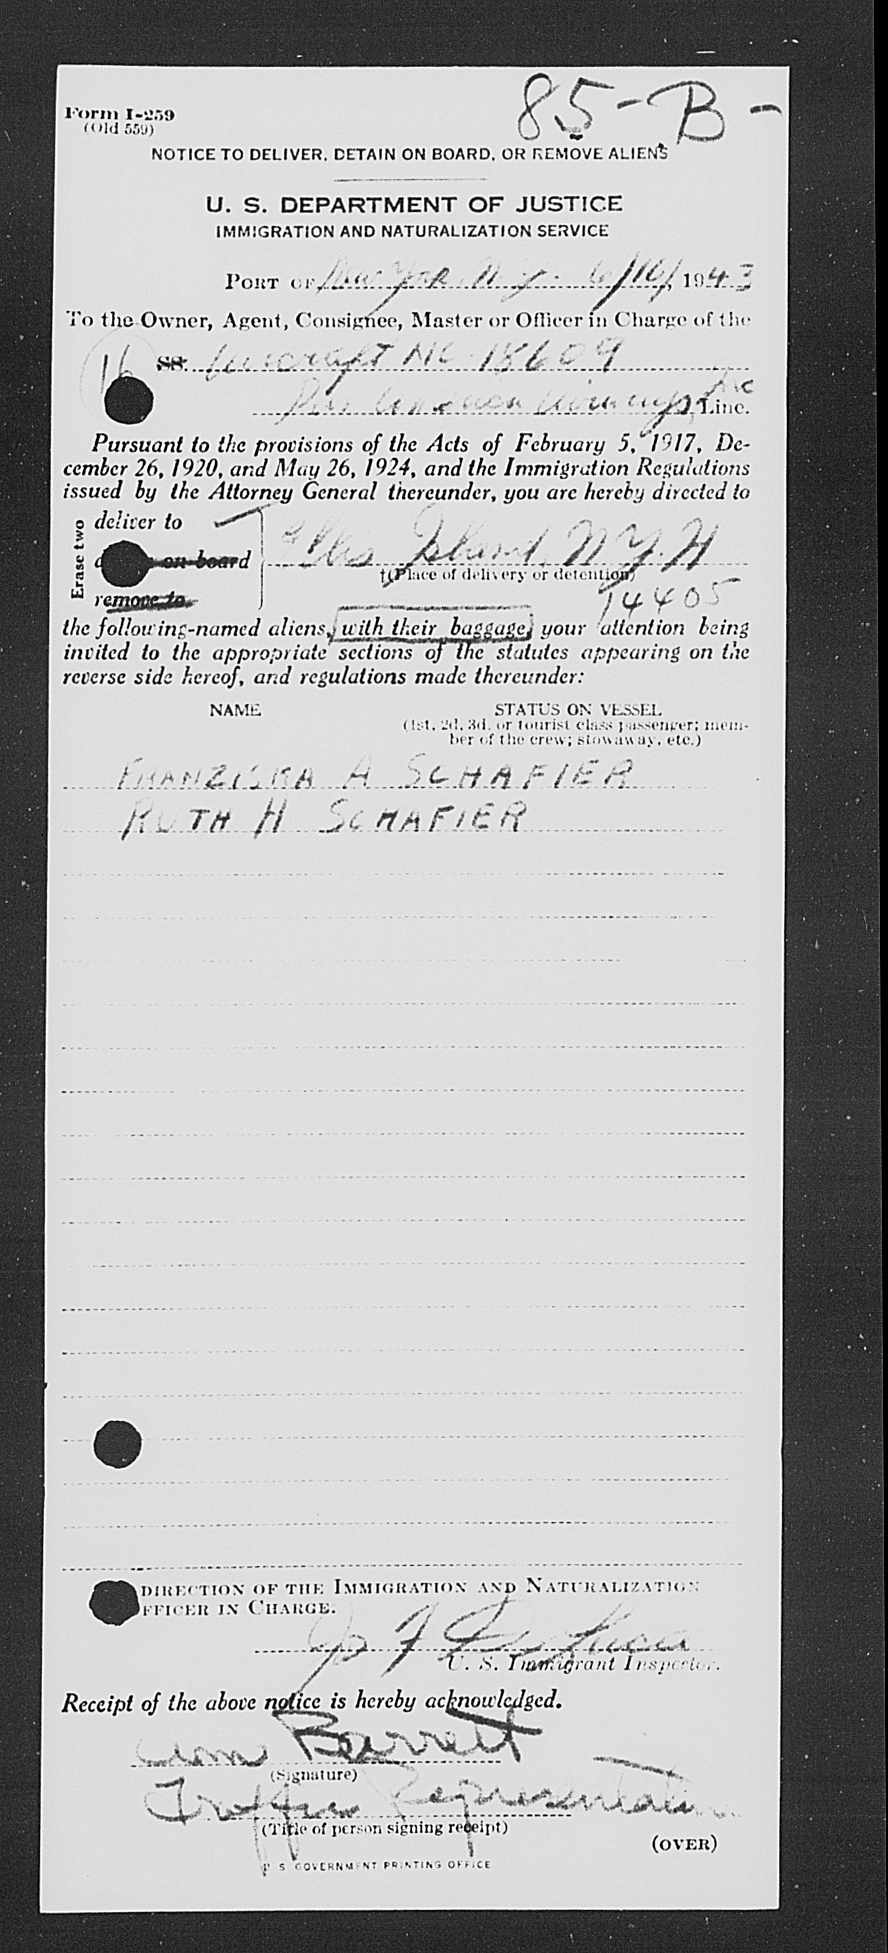 85-B-
Form I-259
(Old 559)
NOTICE TO DELIVER, DETAIN ON BOARD, OR REMOVE ALIENS
U. S. DEPARTMENT OF JUSTICE
IMMIGRATION AND NATURALIZATION SERVICE
PORT OF New York N.Y. 6/16/, 1943
To the Owner, Agent, Consignee, Master or Officer in Charge of the
16 SS. Aircraft NC-18609
Pan American Airways, Inc Line.
Pursuant to the provisions of the Acts of February 5, 1917, De-
cember 26, 1920, and May 26, 1924, and the Immigration Regulations
issued by the Attorney General thereunder, you are hereby directed to
Erase two
deliver to
on board
Ellis Island, N.Y.H
†(Place of delivery or detention)
remove to
14405
the following-named aliens, with their baggage, your attention being
invited to the appropriate sections of the statutes appearing on the
reverse side hereof, and regulations made thereunder:
NAME STATUS ON VESSEL
(1st, 2d, 3d, or tourist class passenger; mem-
ber of the crew; stowaway, etc.)
FRANZISKA A SCHAFIER
RUTH H SCHAFIER
DIRECTION OF THE IMMIGRATION AND NATURALIZATION
OFFICER IN CHARGE.
U. S. Immigrant Inspector.
Receipt of the above notice is hereby acknowledged.
Barrett
(Signature)
Traffic Representative
(Title of person signing receipt)
(OVER)
U. S. GOVERNMENT PRINTING OFFICE